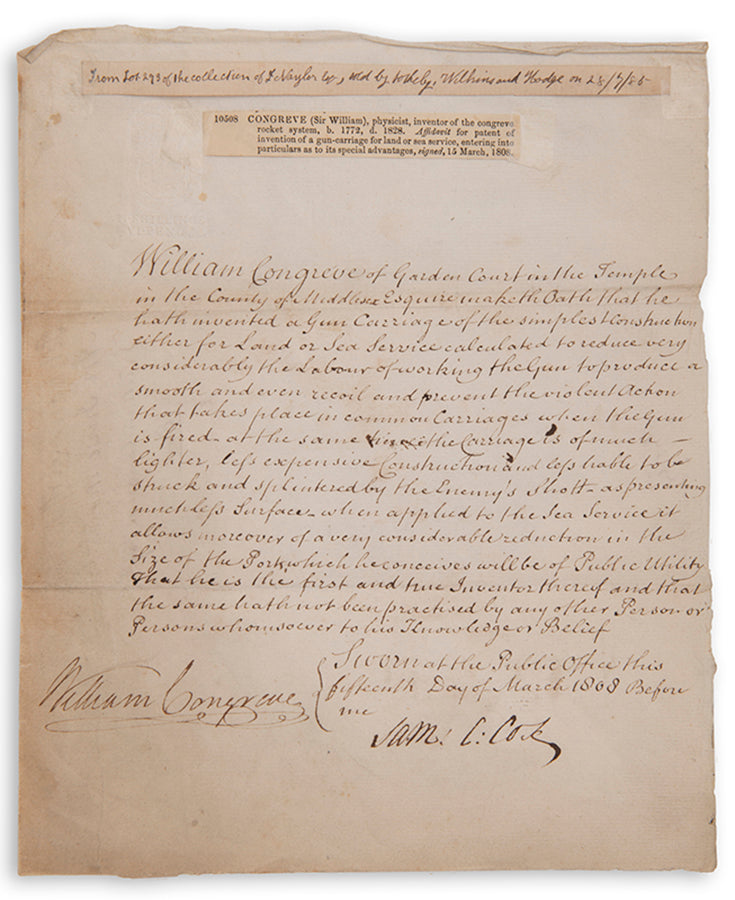 From Lot 293 of the collection of F. Naylor Esq, sold by Sotheby, Wilkins and Hodge on 28/7/85
10508 CONGREVE (Sir William), physicist, inventor of the congreve
rocket system, b. 1772, d. 1828. Affidavit for patent of
invention of a gun-carriage for land or sea service, entering into
particulars as to its special advantages, signed, 15 March, 1808.
William Congreve of Garden Court in the Temple
in the County of Middlesex Esquire maketh Oath that he
hath invented a Gun Carriage of the simplest Construction
either for Land or Sea Service calculated to reduce very
considerably the Labour of working the Gun to produce a
smooth and even recoil and prevent the violent Action
that takes place in common Carriages when the Gun
is fired – at the same time the Carriage is of much –
lighter, less expensive Construction and less liable to be
struck and splintered by the Enemy's Shott – as presenting
much less Surface – when applied to the Sea Service it
allows moreover of a very considerable reduction in the
Size of the Port which he conceives will be of Public Utility
That he is the first and true Inventor thereof and that
the same hath not been practised by any other Person or
Persons whomsoever to his Knowledge or Belief
Sworn at the Public Office this
fifteenth Day of March 1808 Before
me
William Congreve
Saml. C: Cox